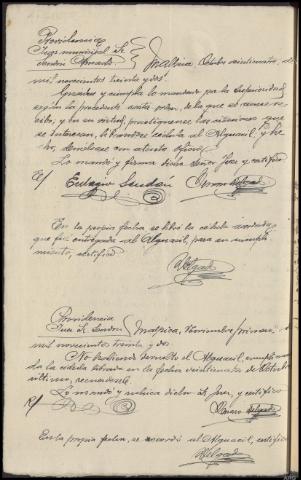 Providencia
Juez municipal Sr.
Sendón
Malpica Octubre veintinueve, de
mil novecientos treinta y dos.
Guárdese y cumpla lo mandado por la Superioridad
según la precedente carta orden, de la que se acuse re-
cibo, y en su virtud, practíquense las citaciones que
se interesan, librándose cédula al Alguacil, y he-
cho, devuélvase con atento oficio.
Lo mandó y firma dicho Señor Juez y certifico
E/ Eutagio Sendón
Delgado
En la propia fecha se libró la cédula acordada
que fué entregada al Alguacil, para su cumpli-
miento, certifico
Delgado
Providencia
Juez Sr. Sendón
Malpica, Noviembre primero,
mil novecientos treinta y dos.
No habiendo devuelto el Alguacil, cumplimenta-
da la cédula librada en la fecha veintinueve de Octubre
último, recuérdesele
Lo mandó y rubrica dicho Sr. Juez, y certifico
R/
Delgado
En la propia fecha, se recordó al Alguacil, certifico
Delgado